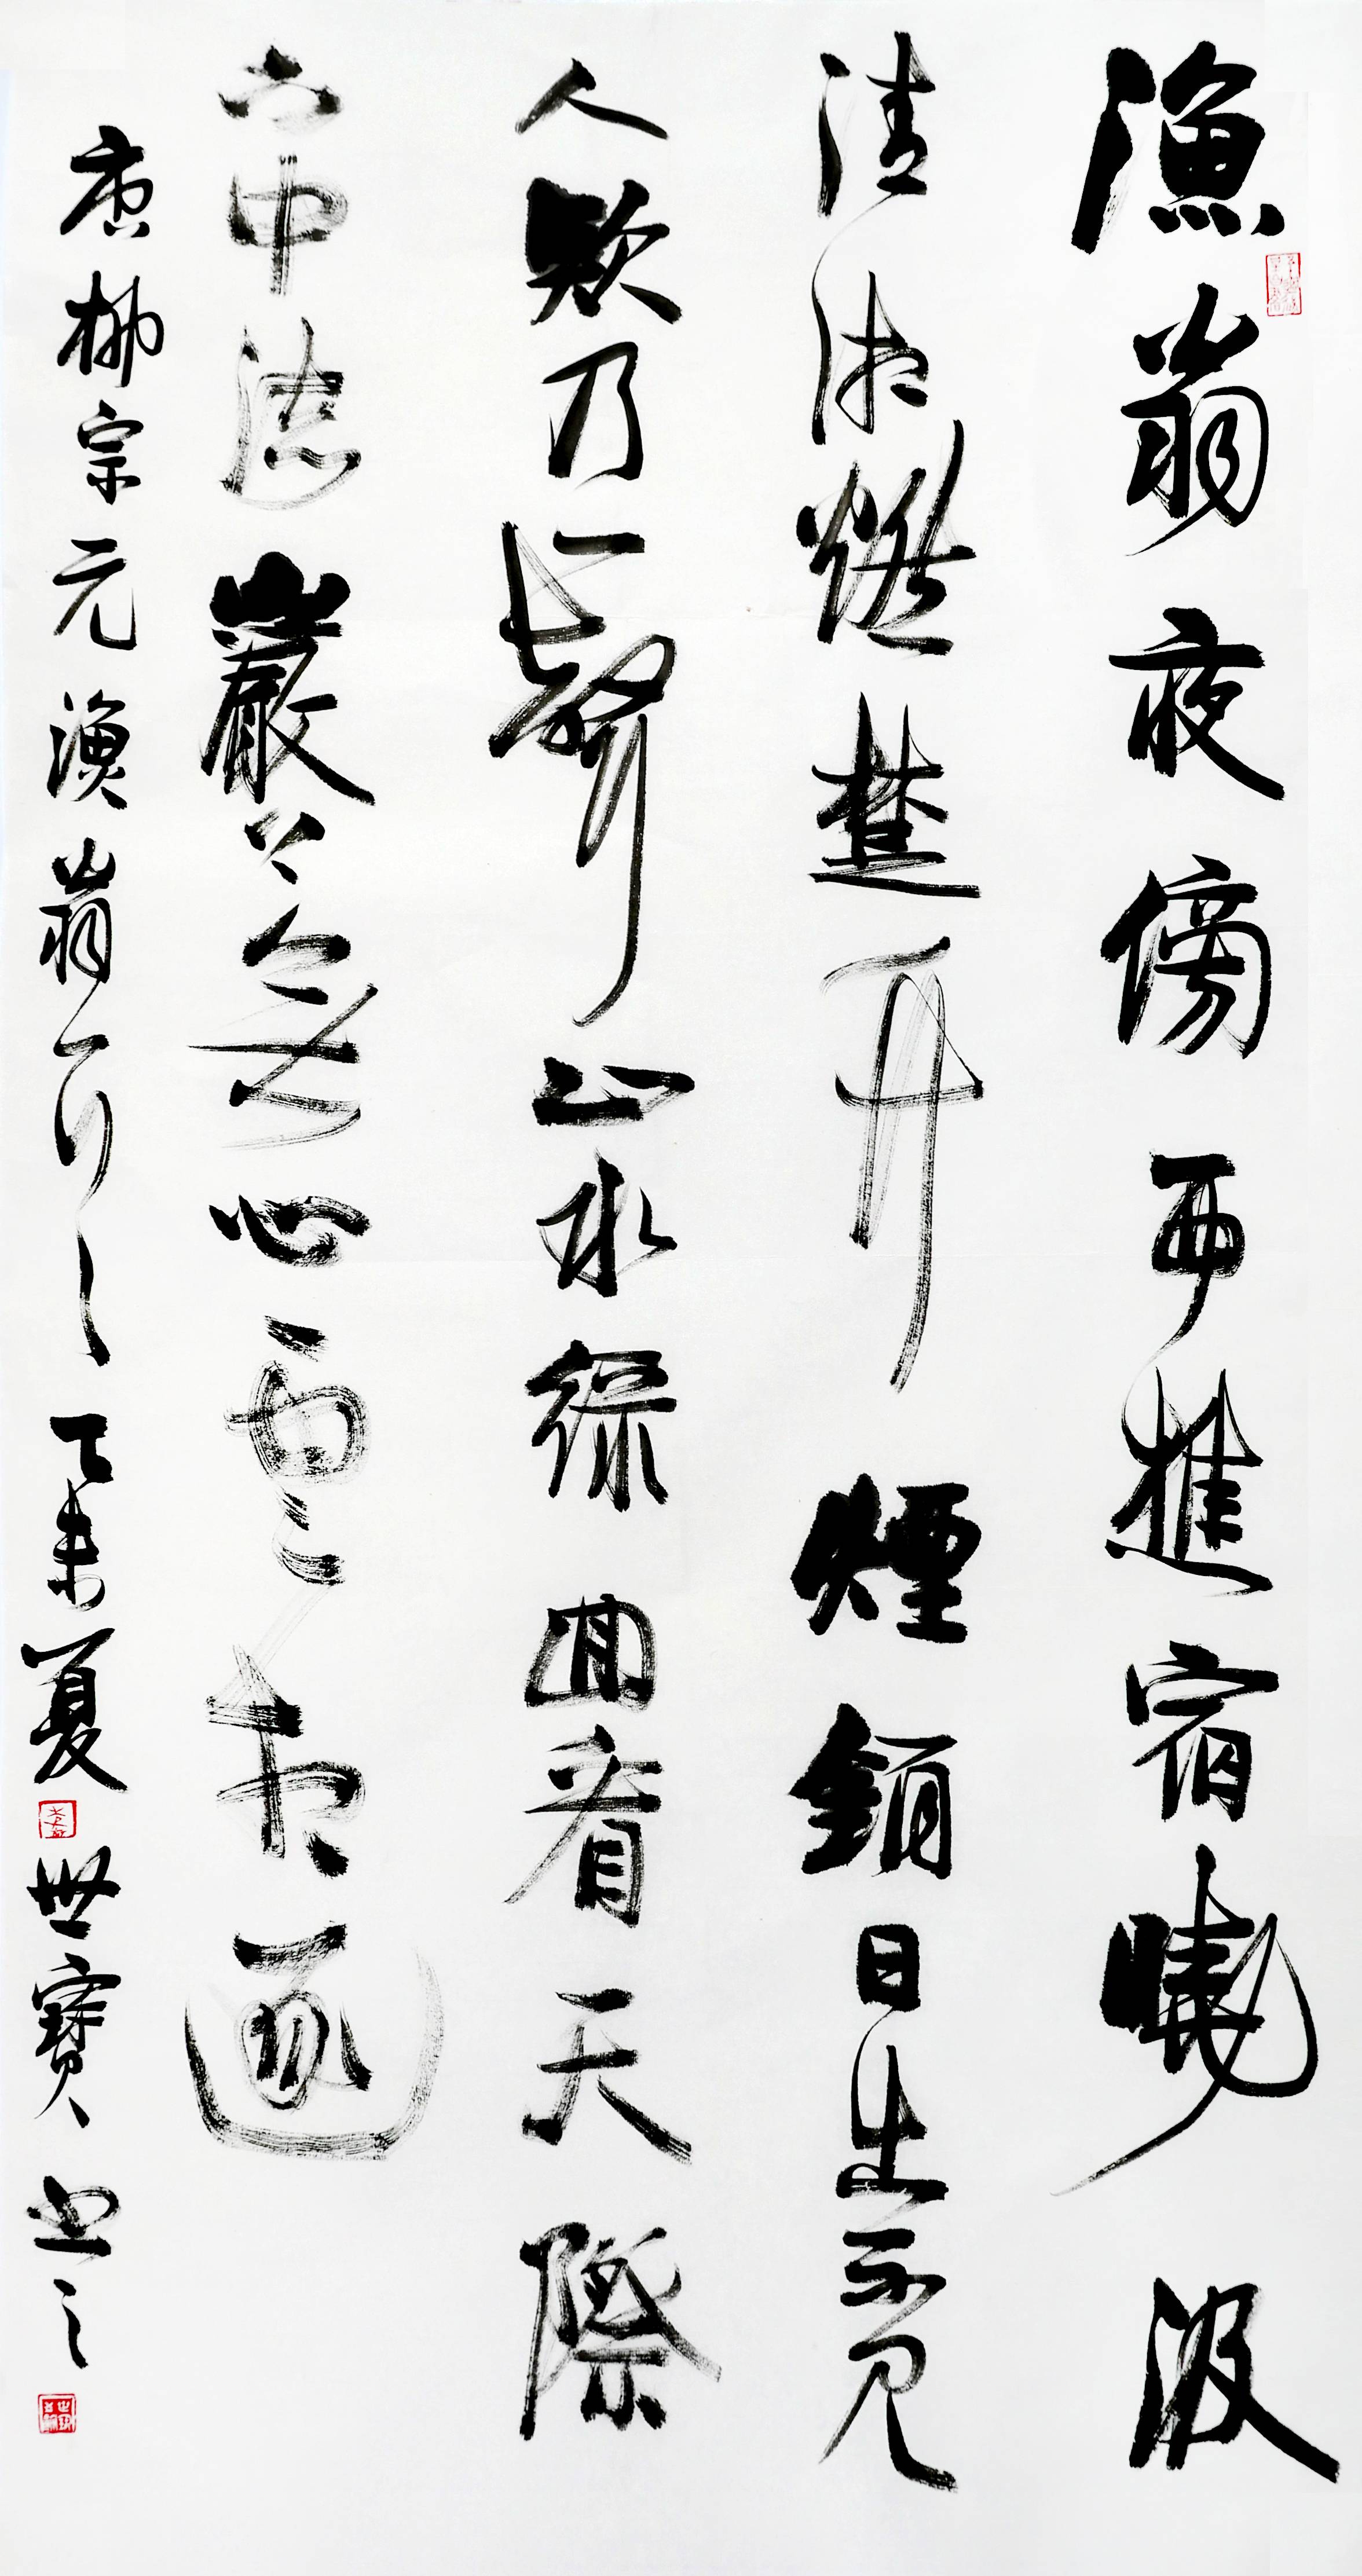 漁翁夜傍西宿曉汲
清湘燃楚竹煙銷日出不見
人欸乃一聲山水綠回看天際
下中流巖上無心雲相逐
唐柳宗元漁翁 乙未夏 世寶書之